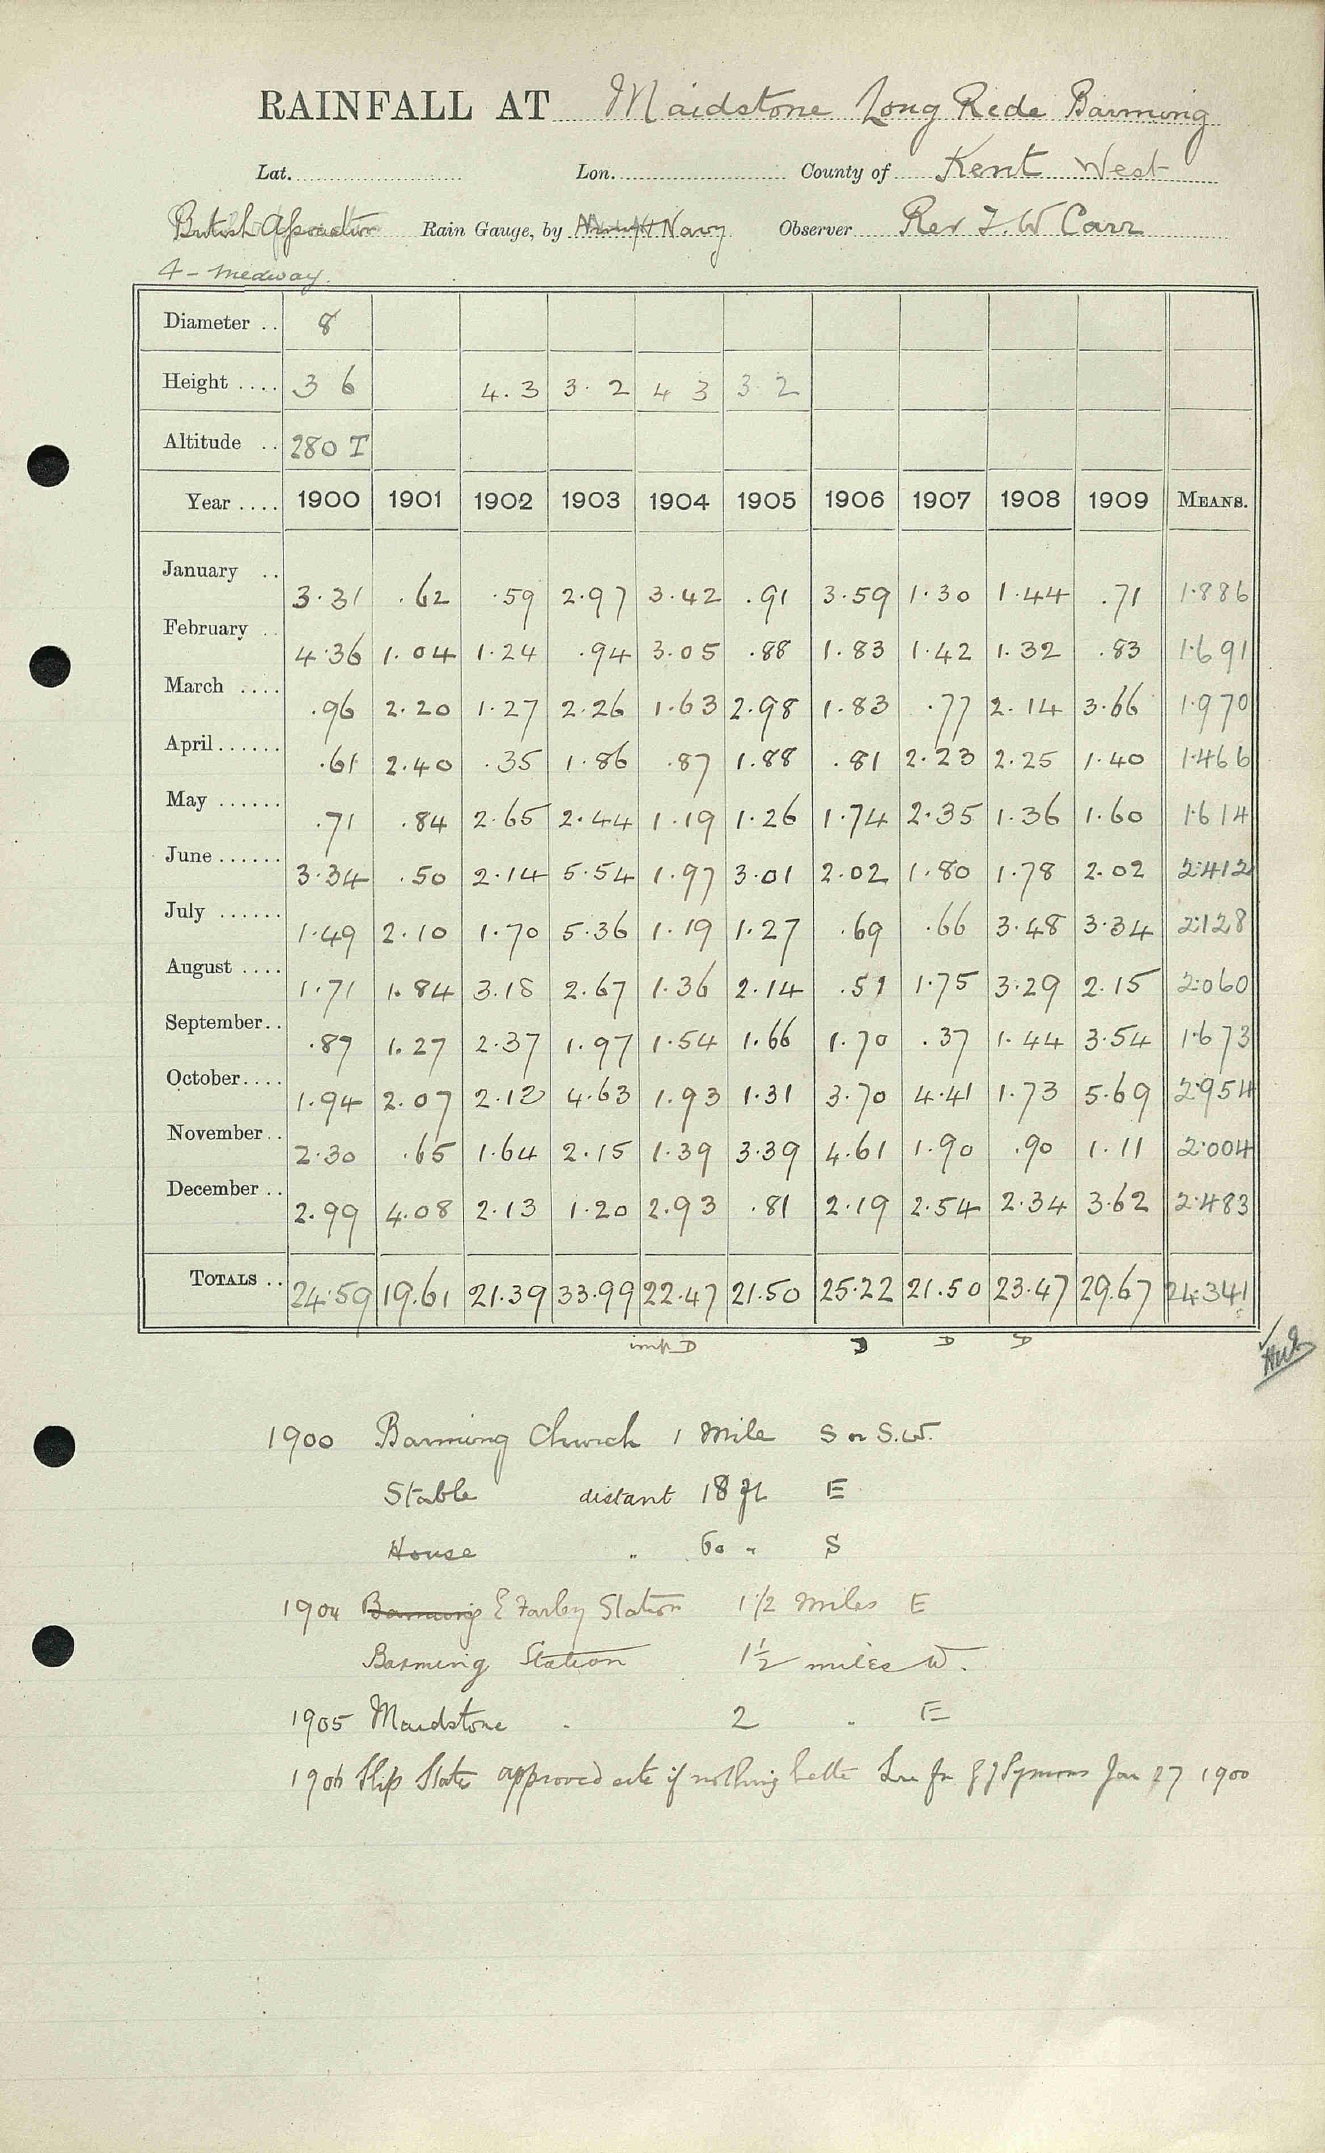 RAINFALL AT Maidstone Long Rede Barming
Lat. Lon. County of Kent West
British Association Rain Gauge, by Army & Navy Observer Rev T. W Carr
4 - Medway.
Diameter .. 8
Height .... 3 6 4.3 3.2 4 3 3.2
Altitude .. 280 T
Year .... 1900 1901 1902 1903 1904 1905 1906 1907 1908 1909 MEANS.
January .. 3.31 .62 .59 2.97 3.42 .91 3.59 1.30 1.44 .71 1.886
February .. 4.36 1.04 1.24 .94 3.05 .88 1.83 1.42 1.32 .83 1.691
March .... .96 2.20 1.27 2.26 1.63 2.98 1.83 .77 2.14 3.66 1.970
April ...... .61 2.40 .35 1.86 .87 1.88 .81 2.23 2.25 1.40 1.466
May ...... .71 .84 2.65 2.44 1.19 1.26 1.74 2.35 1.36 1.60 1.614
June ...... 3.34 .50 2.14 5.54 1.97 3.01 2.02 1.80 1.78 2.02 2.412
July ...... 1.49 2.10 1.70 5.36 1.19 1.27 .69 .66 3.48 3.34 2.128
August .... 1.71 1.84 3.18 2.67 1.36 2.14 .51 1.75 3.29 2.15 2.060
September .. .87 1.27 2.37 1.97 1.54 1.66 1.70 .37 1.44 3.54 1.673
October .... 1.94 2.07 2.13 4.63 1.93 1.31 3.70 4.41 1.73 5.69 2.954
November .. 2.30 .65 1.64 2.15 1.39 3.39 4.61 1.90 .90 1.11 2.004
December .. 2.99 4.08 2.13 1.20 2.93 .81 2.19 2.54 2.34 3.62 2.483
TOTALS .. 24.59 19.61 21.39 33.99 22.47 21.50 25.22 21.50 23.47 29.67 24.341
imp D D D D
1900 Barming Church 1 Mile S or S.W.
Stable distant 18 ft E
House " 60 " S
1904 Barming E Farley Station 1 1/2 Miles E
Barming Station 1 1/2 miles W.
1905 Maidstone . 2 . E
1906 Slip State approved site if nothing better G J Symons Jan 27 1900